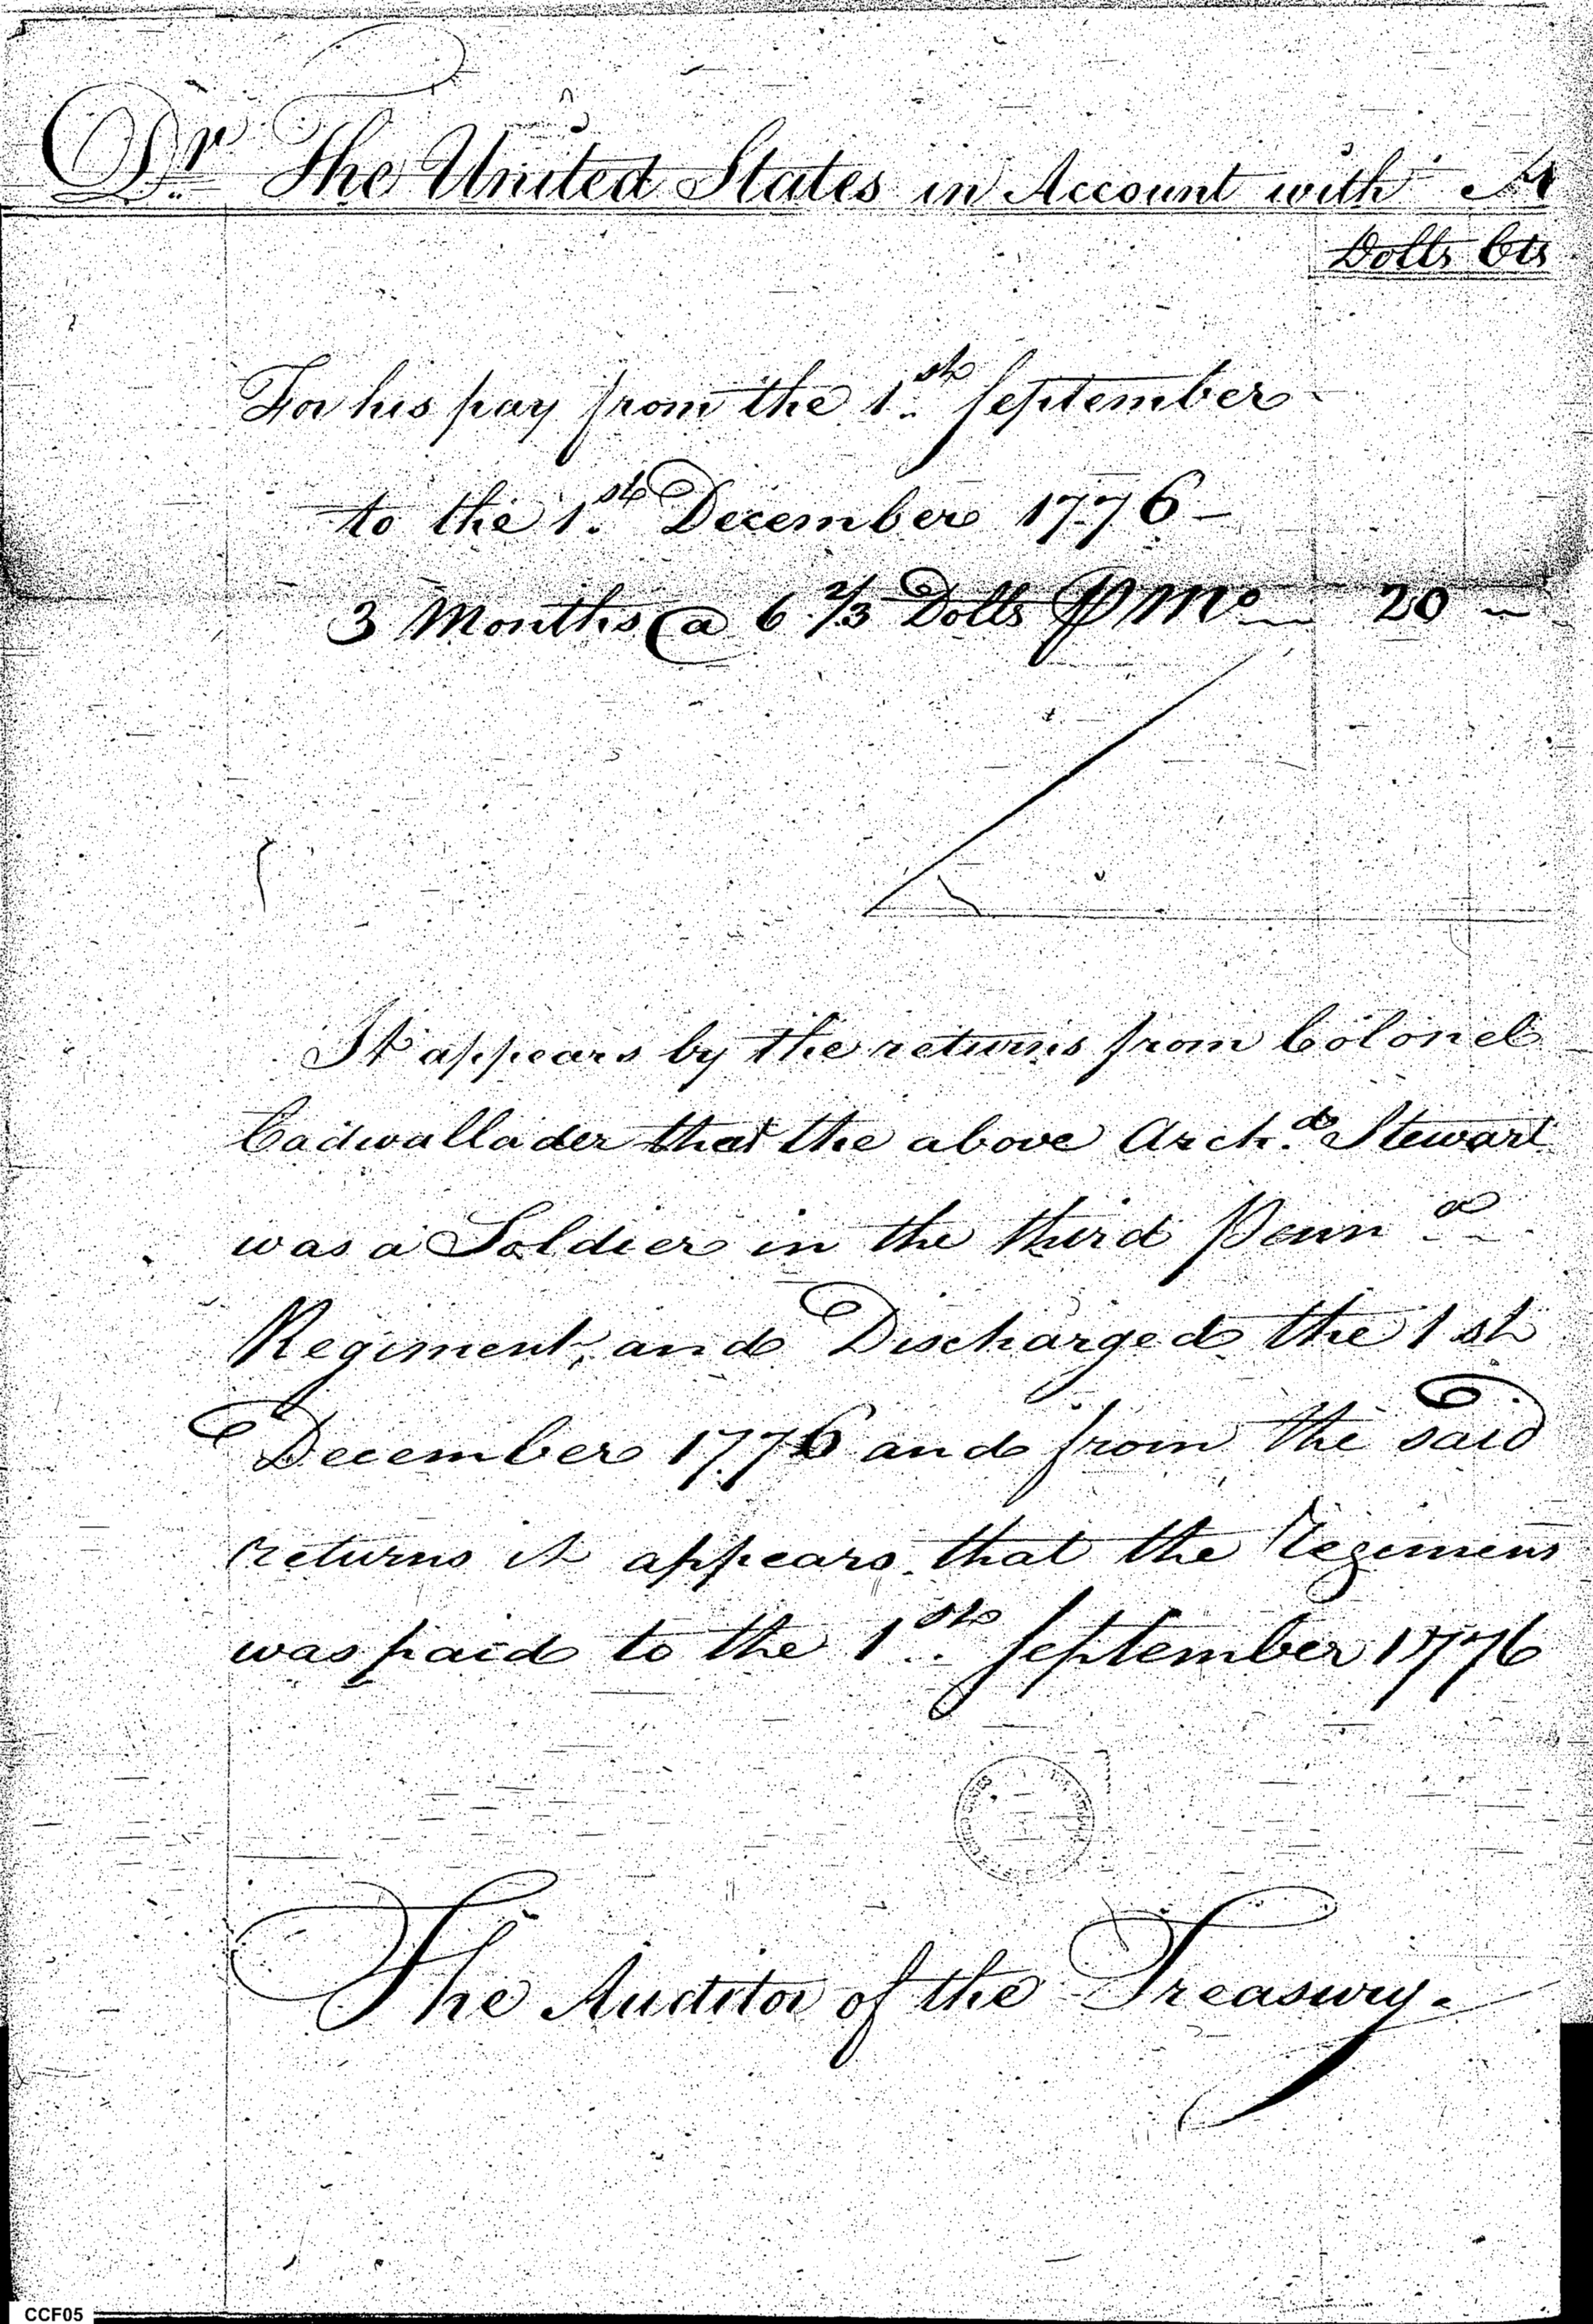 Dr The United States in Account with A
Dolls Cts
For his pay from the 1st September
to the 1st December 1776 –
3 Months @ 6 2/3 Dolls P Mo 20 –
It appears by the returns from Colonel
Cadwallader that the above Archd Stewart
was a Soldier in the third Penna
Regiment, and Discharged the 1st
December 1776 and from the said
returns it appears that the Regiment
was paid to the 1st September 1776
The Auditor of the Treasury.
CCF05